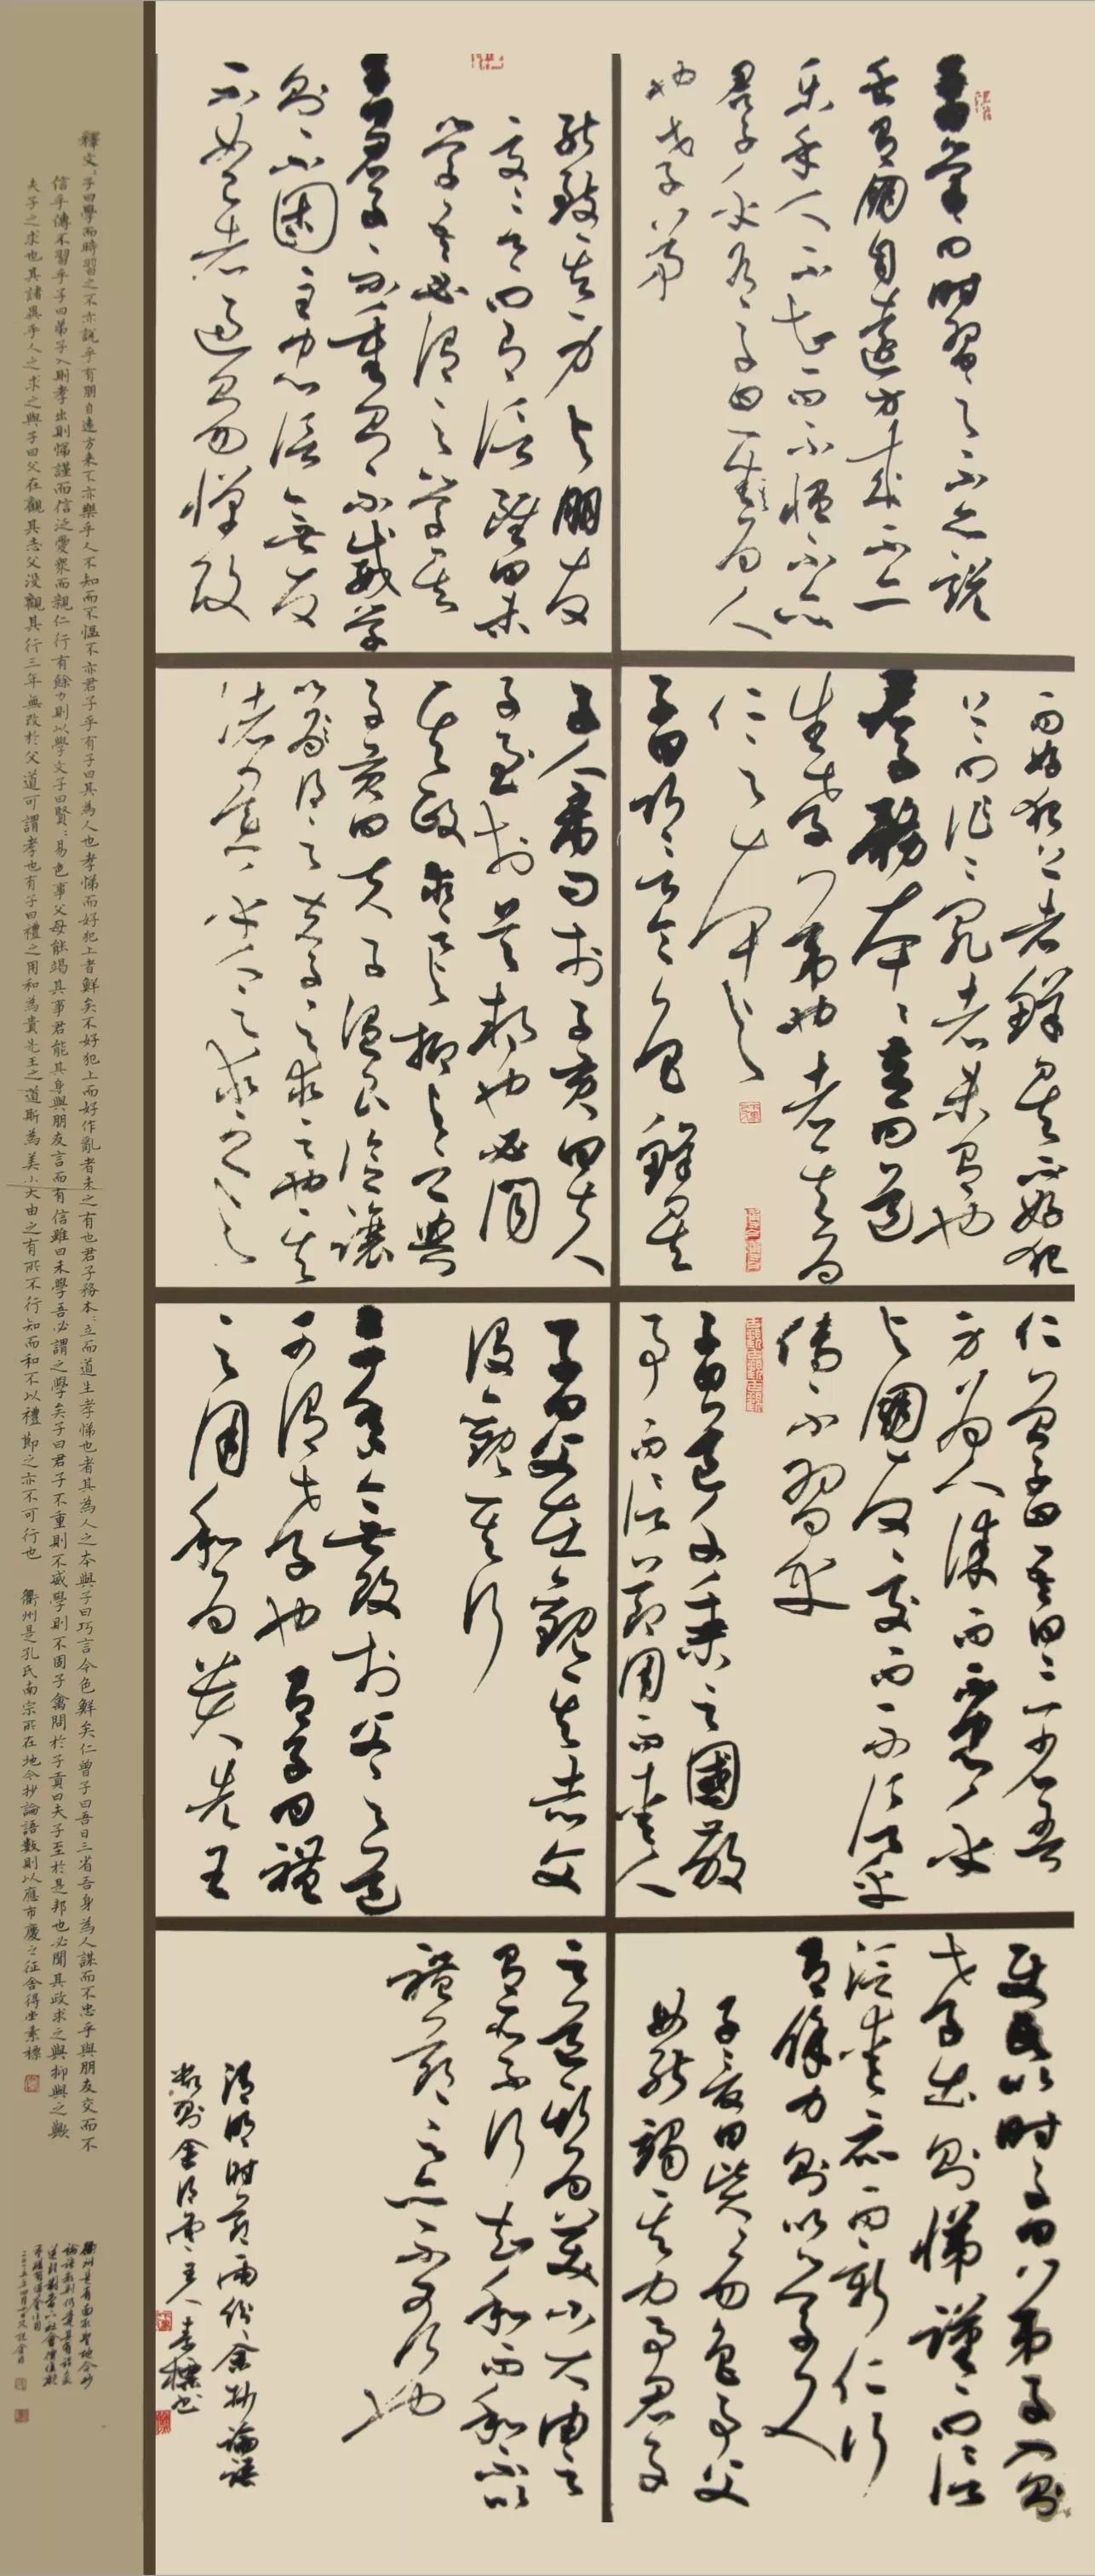 子曰學而時習之不亦說
乎有朋自遠方來不亦
樂乎人不知而不慍不亦
君子乎有子曰其為人
也孝弟
而好犯上者鮮矣不好犯
上而好作亂者未有也
君子務本本立而道
生孝弟也者其為
仁之本與
子曰巧言令色鮮矣
仁曾子曰吾日三省吾
身為人謀而不忠乎
與朋友交而不信乎
傳不習乎
子曰道千乘之國敬
事而信節用而愛人
使民以時子曰弟子入則
孝出則悌謹而信
汎愛眾而親仁行
有餘力則以學文
子夏曰賢賢易色事父
母能竭其力事君
能致其身與朋友
交言而有信雖曰未
學吾必謂之學矣
子曰君子不重則不威學
則不固主忠信無友
不如己者過則勿憚改
子禽問於子貢曰夫
子至於是邦也必聞
其政求之與抑與之與
子貢曰夫子溫良恭儉讓
以得之夫子之求之也其
諸異乎人之求之與
子曰父在觀其志父
沒觀其行
三年無改於父之道
可謂孝也有子曰禮
之用和為貴先王
之道斯為美小大由之
有所不行知和而和不以
禮節之亦不可行也
清明時節雨紛余抄論語
數則舍得堂主人素標書
釋文:子曰學而時習之不亦說乎有朋自遠方來不亦樂乎人不知而不慍不亦君子乎有子曰其為人也孝悌而好犯上者鮮矣不好犯上而好作亂者未之有也君子務本:立而道生孝悌也者其為人之本與子曰巧言令色鮮矣仁曾子曰吾日三省吾身為人謀而不忠乎與朋友交而不
信乎傳不習乎子曰弟子入則孝出則悌謹而信泛愛眾而親仁行有餘力則以學文子曰賢:易色事父母能竭其事君能其身與朋友言而有信雖曰未學吾必謂之學矣子曰君子不重則不威學則不固子禽問於子貢曰夫子至於是邦也必聞其政求之與抑與之歟
夫子之求也其諸異乎人之求之與子曰父在觀其志父沒觀其行三年無改於父道可謂孝也有子曰禮之用和為貴先王之道斯為美小大由之有所不行知而和不以禮節之亦不可行也 衢州是孔氏南宗所在地今抄論語數則以應市慶之征舍得堂素標